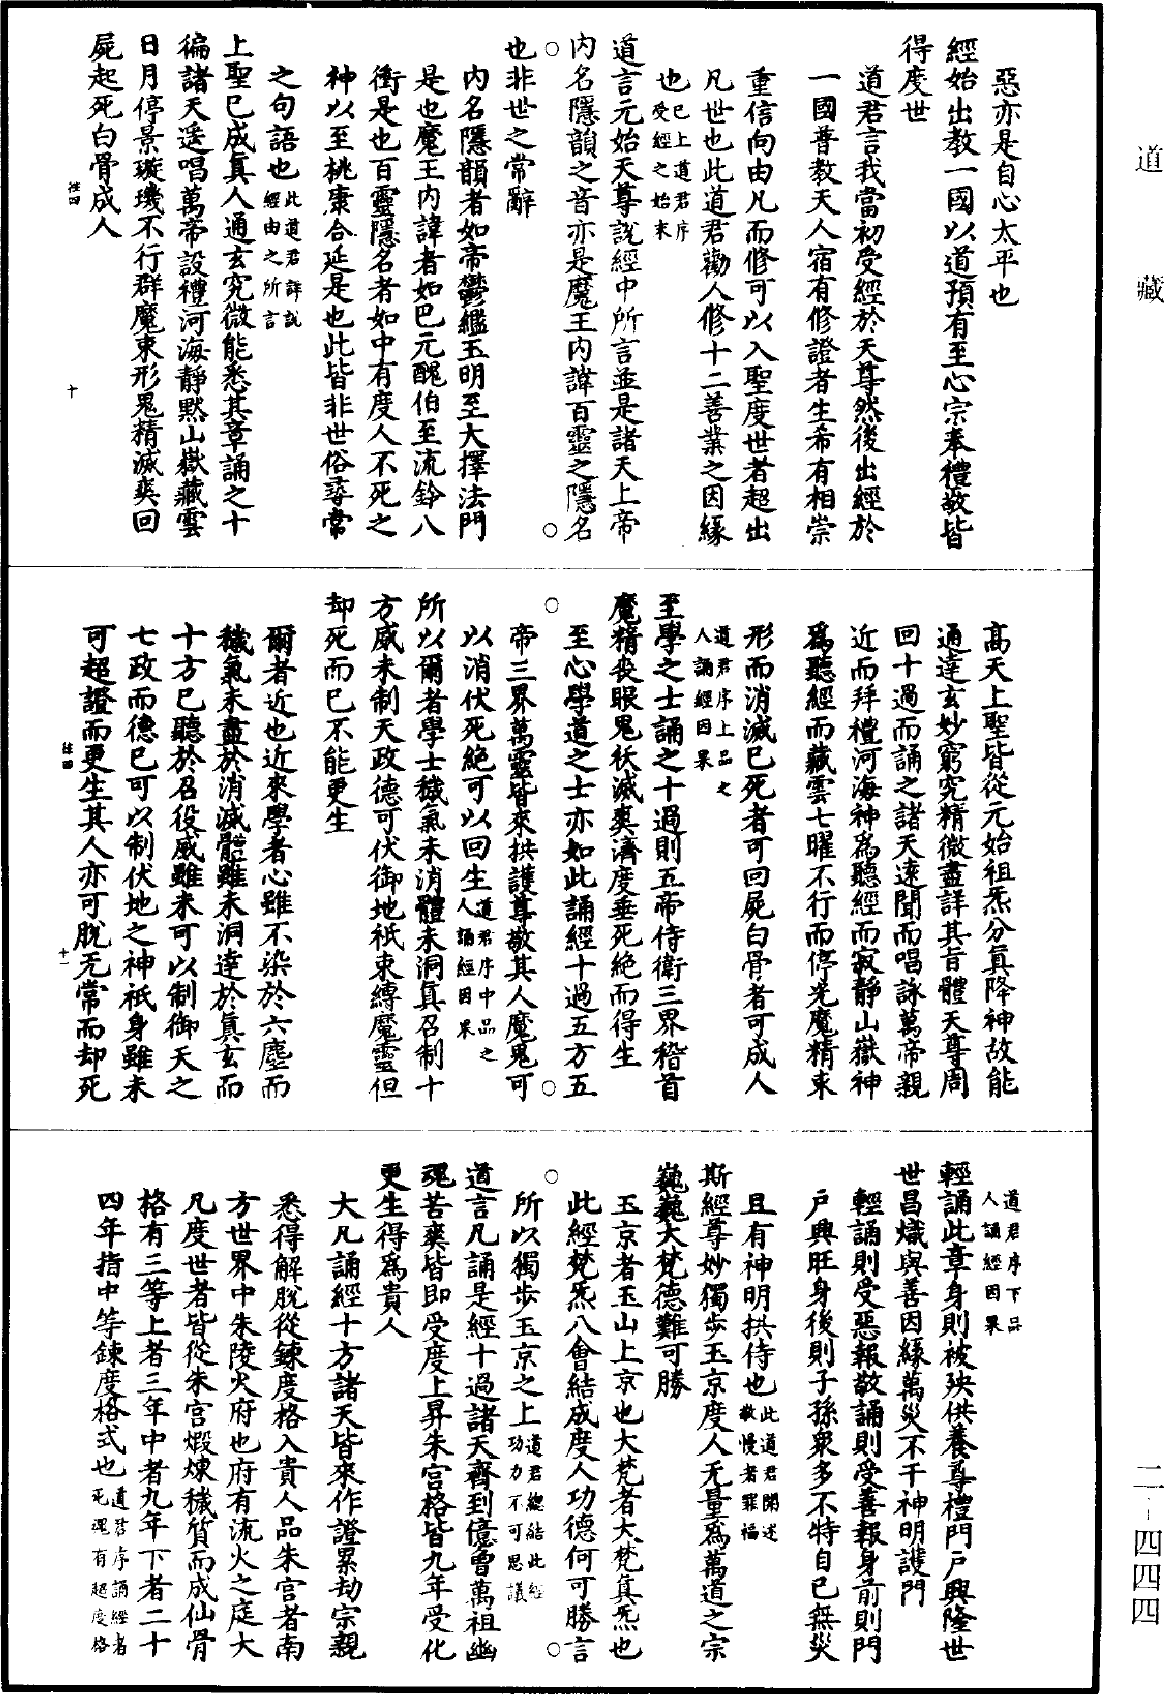 道藏
惡亦是自心太平也
經始出教一國以道預有至心宗奉禮敬皆
得度世
道君言我當初受經於天尊然後出經於
一國普教天人宿有修證者生希有相崇
重信向由凡而修可以入聖度世者超出
凡世也此道君勸人修十二善業之因緣
也已上道君序
受經之始末
道言元始天尊說經中所言並是諸天上帝
內名隱韻之音亦是魔王內諱百靈之隱名
○　○
也非世之常辭
內名隱韻者如帝鬱繿玉明至大擇法門
是也魔王內諱者如巴元醜伯至流鈴八
衝是也百靈隱名者如中有度人不死之
神以至桃康合延是也此皆非世俗尋常
之句語也此道君詳說
經由之所言
上聖已成真人通玄究微能悉其章誦之十
徧諸天遥唱萬帝設禮河海靜默山嶽藏雲
日月停景璇璣不行群魔束形鬼精滅爽回
屍起死白骨成人
註四　十
高天上聖皆從元始祖炁分真降神故能
通達玄妙窮究精微盡詳其旨體天尊周
回十過而誦之諸天遠聞而唱詠萬帝親
近而拜禮河海神為聽經而寂靜山嶽神
為聽經而藏雲七曜不行而停光魔精束
形而消滅已死者可回屍白骨者可成人
道君序上品之
人誦經因果
至學之士誦之十過則五帝侍衛三界稽首
魔精喪眼鬼祅滅爽濟度垂死絕而得生
至心學道之士亦如此誦經十過五方五
○　○
帝三界萬靈皆來拱護尊敬其人魔鬼可
以消伏死絕可以回生道君序中品之
人誦經因果
所以爾者學士穢氣未消體未洞真召制十
方威未制天政德可伏御地祇束縛魔靈但
却死而已不能更生
爾者近也近來學者心雖不染於六塵而
穢氣未盡於消滅體雖未洞達於真玄而
十方已聽於召役威雖未可以制御天之
七政而德已可以制伏地之神祇身雖未
可超證而更生其人亦可脫无常而却死
註四　十一
道君序下品
人誦經因果
輕誦此章身則被殃供養尊禮門戶興隆世
世昌熾與善因緣萬災不干神明護門
輕誦則受惡報敬誦則受善報身前則門
戶興旺身後則子孫眾多不特自已無災
且有神明拱侍也此道君開述
敬慢者罪福
斯經尊妙獨步玉京度人无量為萬道之宗
巍巍大梵德難可勝
玉京者玉山上京也大梵者大梵真炁也
此經梵炁八會結成度人功德何可勝言
○　○
所以獨步玉京之上道君總結此經
功力不可思議
道言凡誦是經十過諸天齊到億曾萬祖幽
魂苦爽皆即受度上昇朱宮格皆九年受化
更生得為貴人
大凡誦經十方諸天皆來作證累劫宗親
悉得解脫從鍊度格入貴人品朱宮者南
方世界中朱陵火府也府有流火之庭大
凡度世者皆從朱宮煆煉穢質而成仙骨
格有三等上者三年中者九年下者二十
四年指中等鍊度格式也道君序誦經者
死魂有超度格
二一四四四